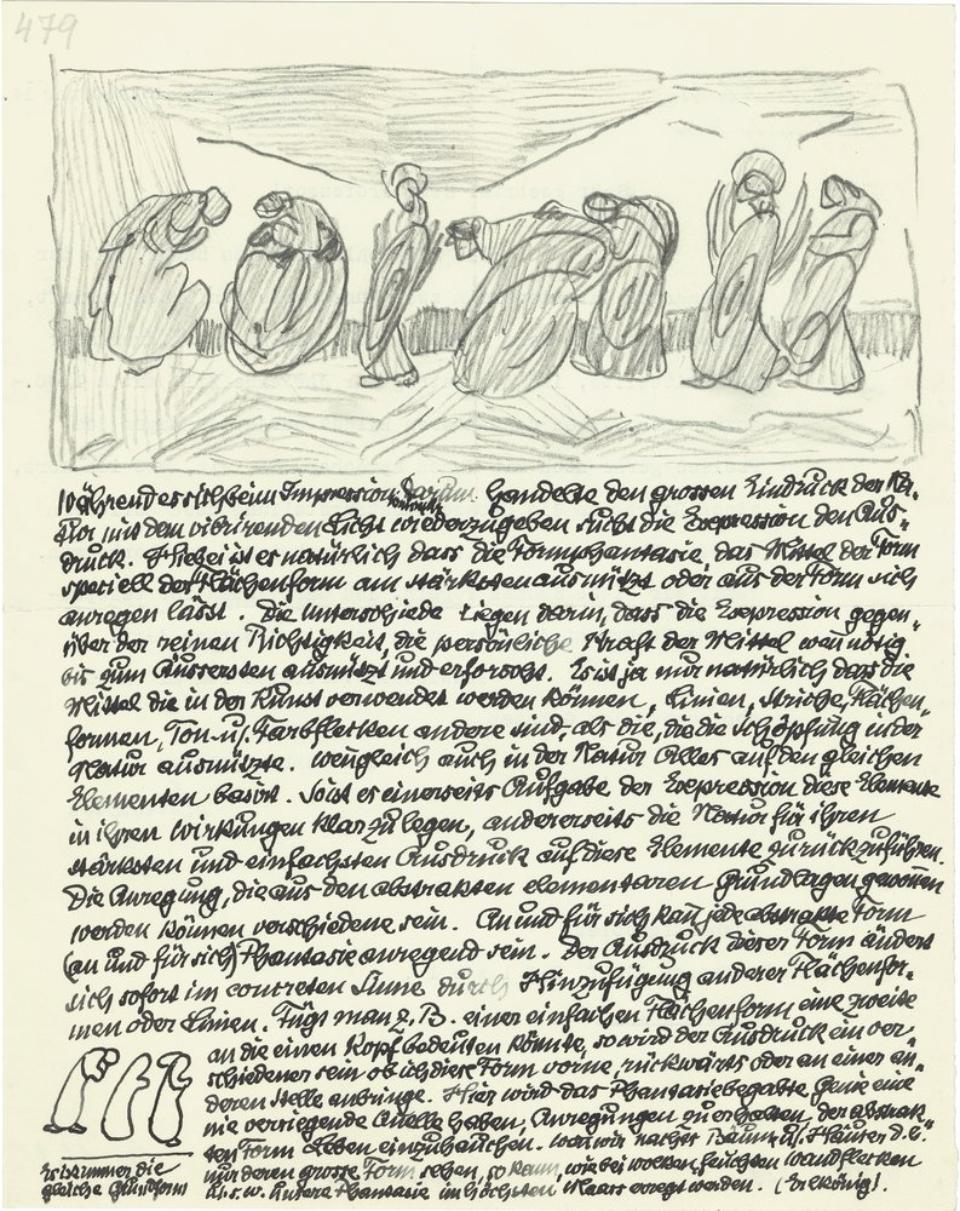 479
Während es sich beim Impression. darum handelte den grossen Eindruck der Na-
tur mit dem vibrirenden Licht wiederzugeben sucht die Expression den Aus-
druck. Hiebei ist es natürlich dass die Formphantasie, das Mittel der Form
speciell der Flächenform am stärksten ausnützt oder aus der Form sich
anregen lässt. Die Unterschiede liegen darin, dass die Expression gegen-
über der reinen Richtigkeit, die persönliche Kraft der Mittel wen nötig
bis zum Äussersten ausnützt und erforscht. Es ist ja nur natürlich dass die
Mittel die in der Kunst verwendet werden können, Linien, Striche, Flächen-
formen, Ton- u. Farbflecken andere sind, als die, die die Schöpfung in der
Natur ausnützte. wengleich auch in der Natur Alles auf den gleichen
Elementen basirt. So ist es einerseits Aufgabe der Expression diese Elemente
in ihren Wirkungen klarzulegen, andererseits die Natur für ihren
stärksten und einfachsten Ausdruck auf diese Elemente zurückzuführen.
Die Anregung, die aus den abstrakten elementaren Grundlagen gewonnen
werden können verschiedene sein. An und für sich kan jede abstrakte Form
(an und für sich) Phantasie anregend sein. Der Ausdruck dieser Form ändert
sich sofort im concreten Sinne durch Hinzufügung anderer Flächenfor-
men oder Linien. Fügt man z. B. einer einfachen Flächenform eine zweite
an die einen Kopf bedeuten könnte, so wird der Ausdruck ein ver-
schiedener sein ob ich diese Form vorne, rückwärts oder an einer an-
deren Stelle anbringe. Hier wird das Phantasiebegabte Genie eine
nie versiegende Quelle haben, Anregungen zu erhalten, der abstrak-
ten Form Leben einzuhauchen. wen wir nachts Bäume u. Häuser d. h.
nur deren grosse Form sehen, so kann, wie bei wolken, feuchten wandflecken
u.s.w. unsere Phantasie im höchsten Maass erregt werden. (Erlkönig).
Es ist immer die
gleiche Grundform